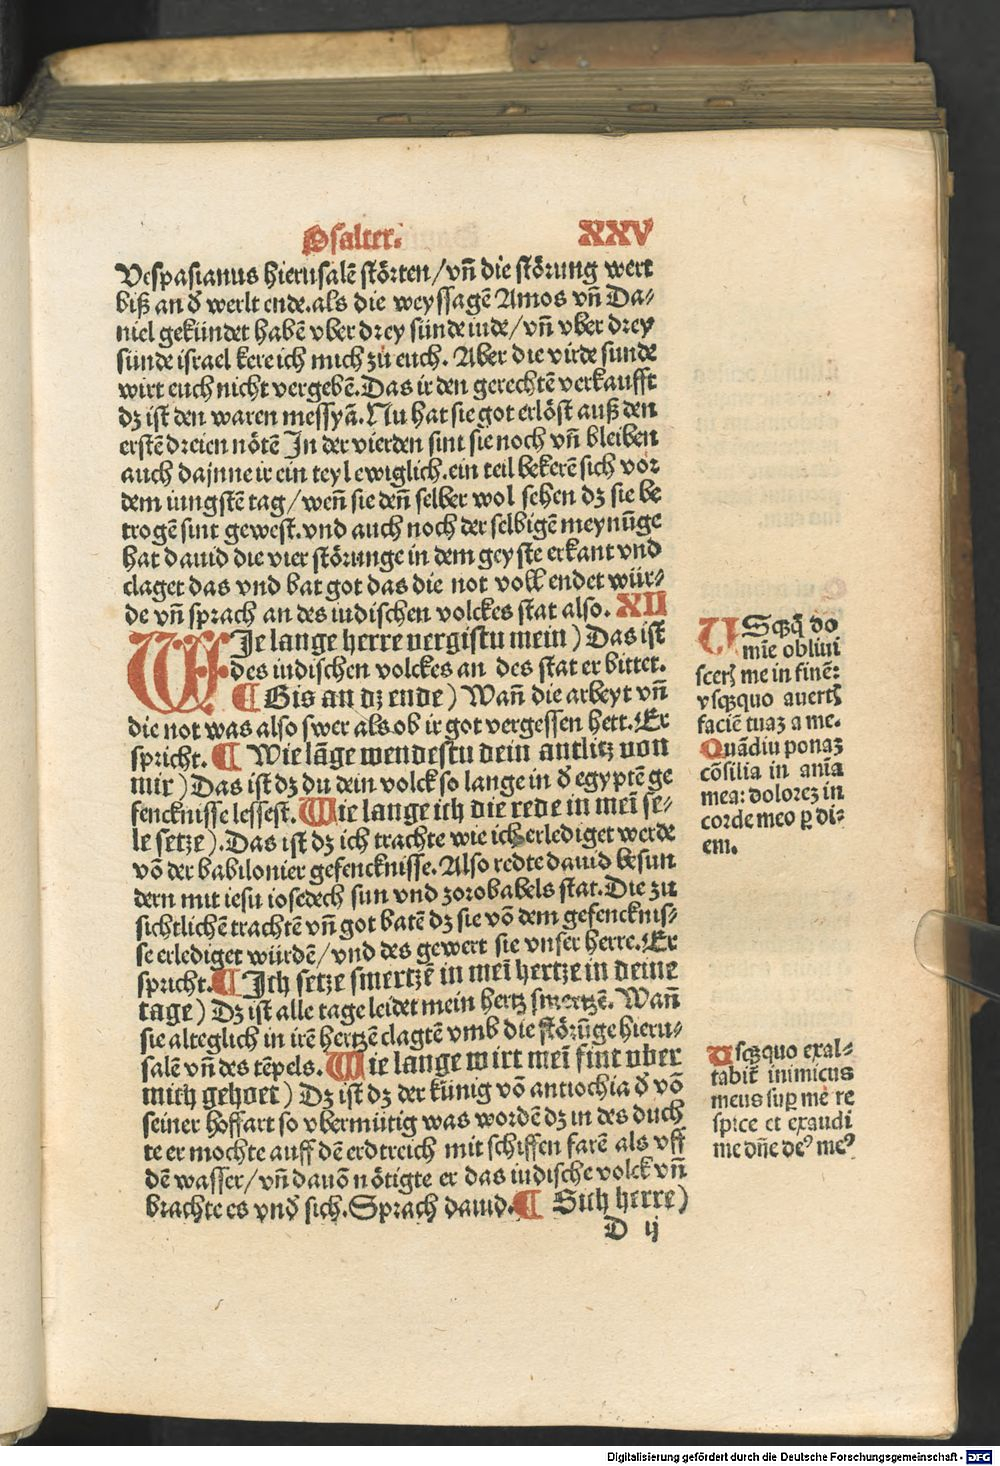 Psalter. XXV
Vespasianus hierusalē störten/vñ die störung wert
biß an ď werlt ende.als die weyssagē Amos vñ Da-
niel gekündet habē vber drey sünde iude/vñ vber drey
sünde israel kere ich mich zů euch. Aber die virde sunde
wirt euch nicht vergebē.Das ir den gerechtē verkaufft
dz ist den waren messyā.Nu hat sie got erlöst auß den
erstē dreien nötē In der vierden sint sie noch vñ bleiben
auch dajnne ir ein teyl ewiglich.ein teil bekerē sich vor
dem iungstē tag/weñ sie deñ selber wol sehen dz sie be
trogē sint gewest.vnd auch noch der selbigē meynūge
hat dauid die vier störunge in dem geyste erkant vnd
claget das vnd bat got das die not vollendet wür-
de vñ sprach an des iudischen volckes stat also. XII
WIe lange herre vergistu mein) Das ist
des iudischen volckes an des stat er bittet.
¶ Bis an dz ende) Wañ die arbeyt vñ
die not was also swer als.ob ir got vergessen hett.Er
spricht. ¶ Wie lāge wendestu dein antlitz von
mir) Das ist dz du dein volck so lange in ď egyptē ge
fencknisse lessest. Wie lange ich die rede in meī se-
le setze).Das ist dz ich trachte wie ich erlediget werde
vō der babilonier gefencknisse.Also redte dauid besun
dern mit iesu iosedech sun vnd zorobabels stat.Die zu
sichtlichē trachtē vñ got batē dz sie vō dem gefencknis-
se erlediget würdē/vnd des gewert sie vnser herre.Er
spricht. ¶ Ich setze smertzē in meī hertze in deine
tage) Dz ist alle tage leidet mein hertz smertzē. Wañ
sie alteglich in irē hertzē clagtē vmb die störūge hieru-
salē vñ des tēpels. Wie lange wirt meī fint vber
mich gehoet) Dz ist dz der künig vō antiochia ď vō
seiner hoffart so vbermütig was wordē dz in des duch
te er mochte auff dē erdtreich mit schiffen farē als vff
dē wasser/vñ dauō nötigte er das iudische volck vñ
brachte es vnď sich.Sprach dauid. ¶ Sich herre)
D ij
USqꝫq̃ do
mīe obliui
scerꝭ me in finē:
vsqꝫquo auertꝭ
faciē tuaꝫ a me.
Quādiu ponaꝫ
cōsilia in aīa
mea: doloreꝫ in
corde meo ꝑ di-
em.
Usqꝫquo exal-
tabit᷑ inimicus
meus suꝑ me re
spice et exaudi
me dñe deꝰ meꝰ
Digitalisierung gefördert durch die Deutsche Forschungsgemeinschaft - DFG